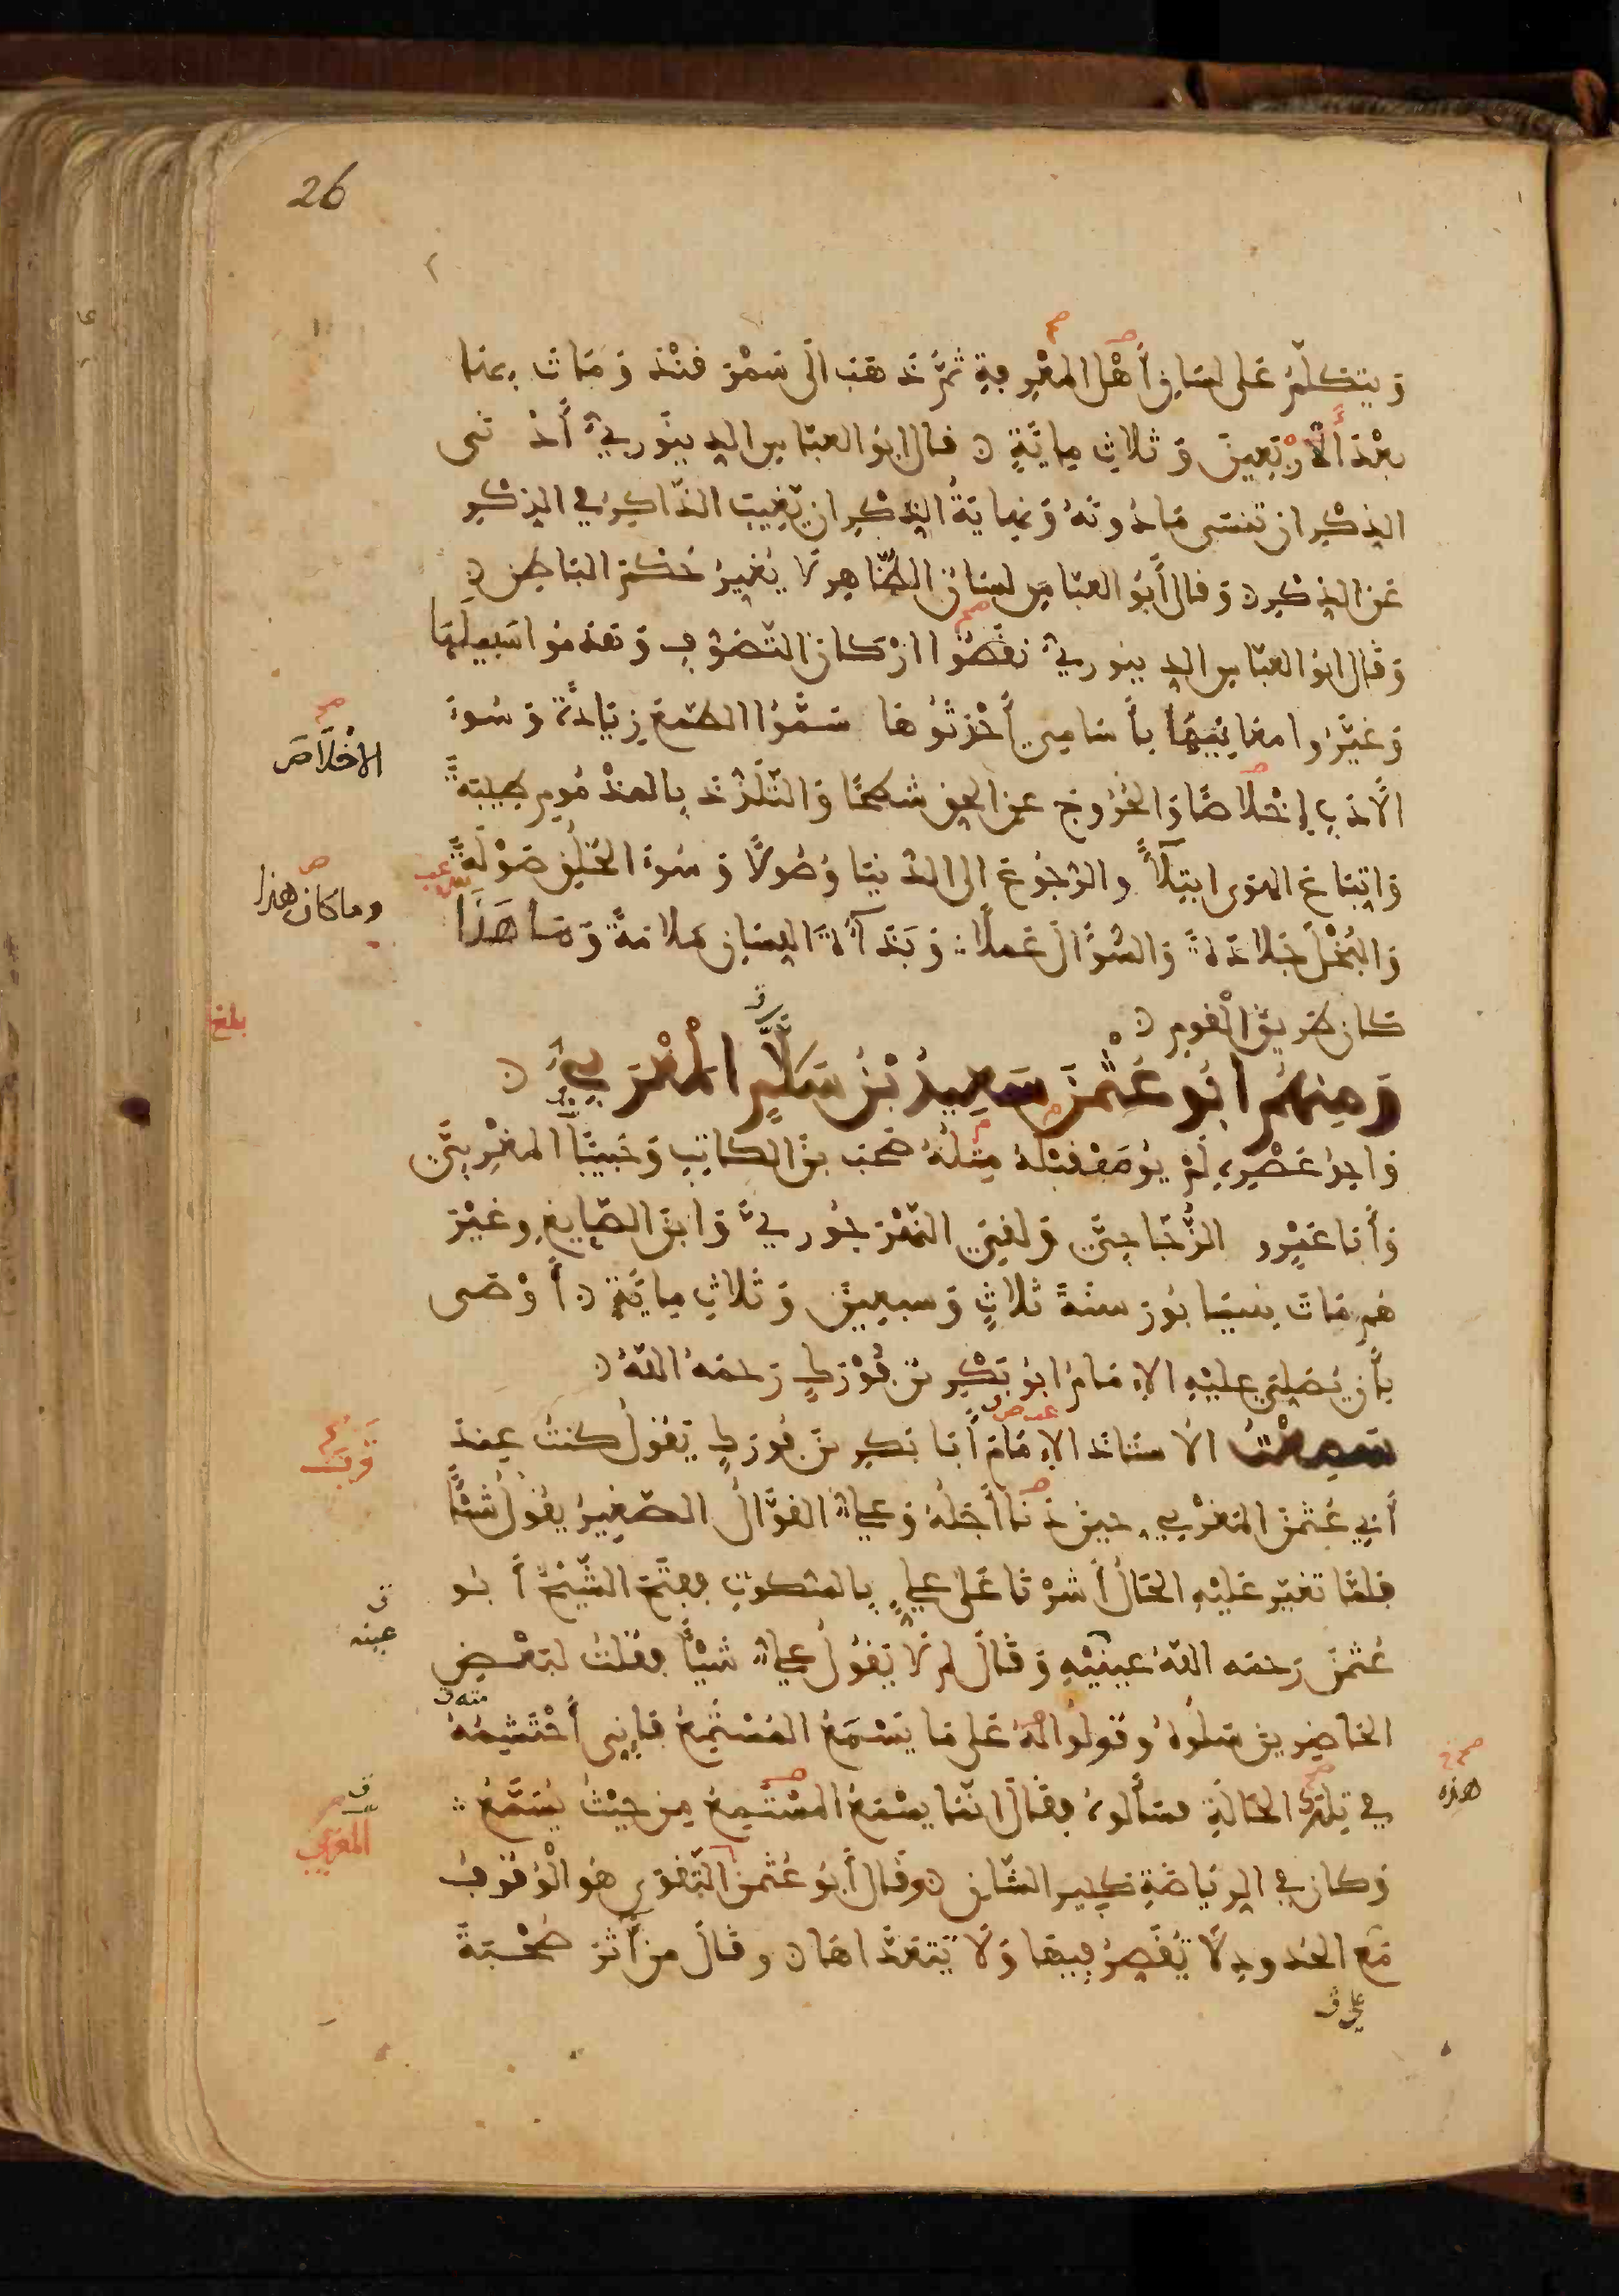 26
وَيتكلّمُ عَلى لسَانِ أهْل المَعْرِفةِ ثمَّ ذهَب الَى سَمْرَقنْدَ وَمَات بها
بعْدَ الأرْبَعِينَ وَثلاثِ مِايَةٍ قال ابُو العبّاس الدِينَوَرِيُّ أدْنى
الذِكْرِ ان تنسَى مَا دُونهُ وَنِهايَةُ الذِكْرِ ان يَغِيبَ الذّاكِرُ في الذِكْرِ
عَنِ الذِكْرِ وَقال أبُو العبّاسِ لِسَانُ الظّاهِرِ لَا يُغَيِّرُ حُكْمَ البَاطِنِ
وَقال ابُو العبّاس الدِينوَرِيُّ نقَضُوا ارْكانَ التّصَوُّفِ وَهدَمُوا سَبِيلهَا
وَغيَّرُوا معَانِيَهَا بأسَامِي أحْدَثُوهَا سَمَّوُا الطّمَعَ زِيَادَةً وَسُوءَ
الأدَبِ إخْلَاصًا وَالخُرُوجَ عنِ الحَقِ شطحًا وَالتّلَذُّذَ بِالمذْمُومِ طِيبَةً
وَاتِبَاعَ الهوَى ابتِلَآءً والرُّجُوعَ الى الدُّنيَا وُصُولًا وَسُوءَ الخُلُقِ صَوْلَةً
وَالبُخْلَ جَلَادَةً وَالسُّؤَالَ عَملًا وَبَذَآءَةَ اللِسَانِ مَلامَةً وَمَا هَذَا
كَانَ طرِيقَ القومِ
وَمِنهُم ابُو عُثْمَنَ سَعِيدُ بْنُ سَلَّامٍ المَغْرَبِيُّ
وَاحِدُ عَصْرِهِ لَمْ يُوصَفْ قبْلهُ مِثلُهُ صَحِبَ بنَ الكاتِبِ وَحَبِيبًا المغْرِبِيَّ
وَأبَا عَمْرٍو الزُّجَاجِيَّ وَلقِيَ النّهْرَجُورِيَّ وَابنَ الصّايِغِ وغَيْرَ
هُم مَات بنيسَابُورَ سنةَ ثلاثٍ وَسبعِينَ وَثلاثِ مِايَةٍ أوْصَى
بأن يُصَلِيَ عليْهِ الاِمَامُ ابُو بَكْرِ بنُ فُوْرَكٍ رَحمَهُ اللّهُ
سَمِعْتُ الأستاذ الاِمَامَ أبَا بَكرِ بنَ فُورَكٍ يَقُولُ كنتُ عِندَ
أبِي عُثمنَ المَغْرِبِي حِينَ دَنَا أجَلُهُ وَعلِيٌّ القوَّالُ الصّغِيرُ يقُولُ شيْئًا
فلمّا تغيّر عَليْهِ الحَالُ أشرْنَا عَلى عليٍّ بِالسُّكوتِ ففتَحَ الشّيْخُ أبُو
عُثمنَ رَحمَه اللّهُ عينيْهِ وَقالَ لِم لَا يَقُولُ عليٌّ شيْئًا فقلتُ لبَعْضِ
الحَاضِرِينَ سَلُوهُ وَقُولُوا لَهُ عَلى مَا يَسْمَعُ المُسْتَمِعُ فإنِي أحْتَشِمُهُ
في تِلْكَ الحَالَةِ فسَألوهُ فقالَ انّمَا يسْمَعُ المُسْتَمِعُ مِن حَيْثُ يُسَمَّعُ
وَكان في الرِيَاضَةِ كبِير الشّانِ وَقال أبُو عُثمنَ التّقْوَى هُوَ الْوُقُوفُ
مَعَ الحُدُودِ لَا يُقَصِّرُ فِيهَا وَلَا يَتعَدّاهَا وقالَ من آثرَ صُحْبَةَ
صح
الاخْلَاصَ
ص
وما كان هذا
بلغ
ق
عينه
صح
هذه
المغربي